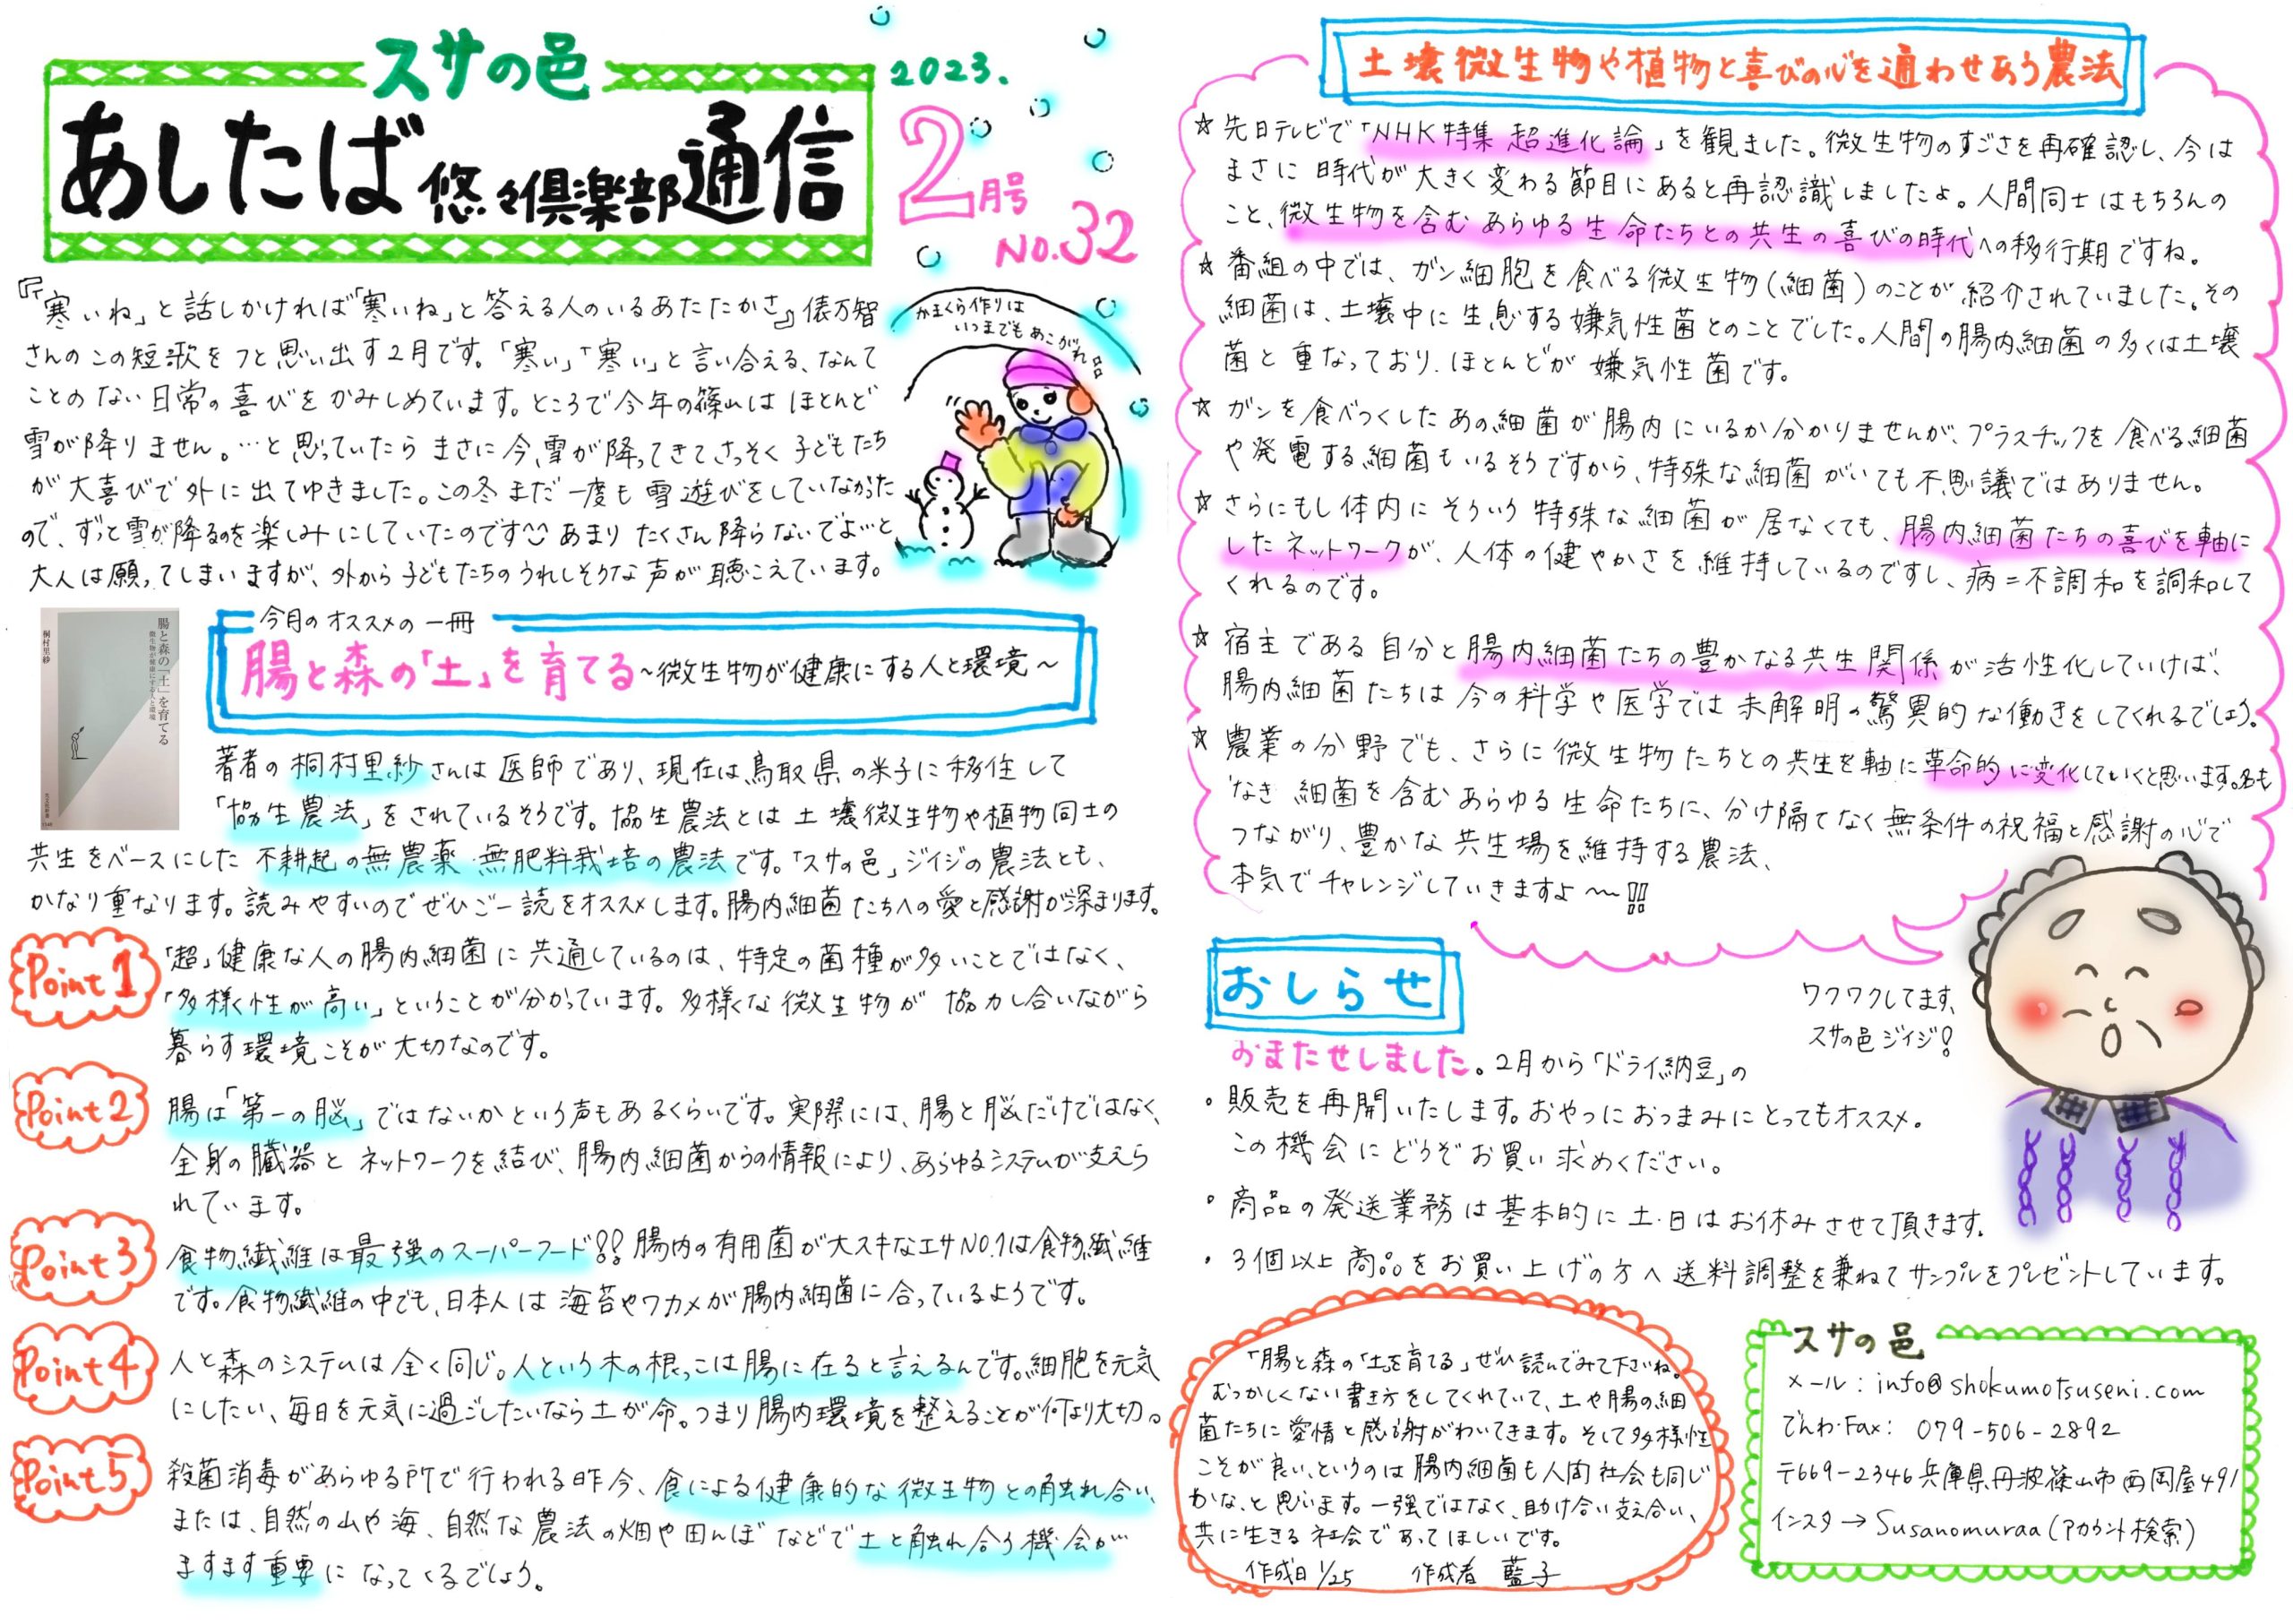 スサの邑
あしたば悠々倶楽部通信
2023.
2月号
NO.32
『「寒いね」と話しかければ「寒いね」と答える人のいるあたたかさ』俵万智
さんのこの短歌をフと思い出す2月です。「寒い」「寒い」と言い合える、なんて
ことのない日常の喜びをかみしめています。ところで今年の篠山はほとんど
雪が降りません。…と思っていたらまさに今、雪が降ってきてさっそく子どもたち
が大喜びで外に出てゆきました。この冬まだ一度も雪遊びをしていなかった
ので、ずっと雪が降るのを楽しみにしていたのです あまりたくさん降らないでよ…と
大人は願ってしまいますが、外から子どもたちのうれしそうな声が聴こえています。
かまくら作りは
いつまでもあこがれ
腸と森の「土」を育てる
微生物が健康にする人と環境
桐村里紗
今月のオススメの一冊
腸と森の「土」を育てる～微生物が健康にする人と環境～
著者の桐村里紗さんは医師であり、現在は鳥取県の米子に移住して
「協生農法」をされているそうです。協生農法とは土壌微生物や植物同士の
共生をベースにした不耕起の無農薬・無肥料栽培の農法です。「スサの邑」ジイジの農法とも、
かなり重なります。読みやすいのでぜひご一読をオススメします。腸内細菌たちへの愛と感謝が深まります。
Point1
「超」健康な人の腸内細菌に共通しているのは、特定の菌種が多いことではなく、
「多様く性が高い」ということが分かっています。多様くな微生物が協力し合いながら
暮らす環境こそが大切なのです。
Point2
腸は「第一の脳」ではないかという声もあるくらいです。実際には、腸と脳だけではなく、
全身の臓器とネットワークを結び、腸内細菌からの情報により、あらゆるシステムが支えら
れています。
Point3
食物繊維は最強のスーパーフード!! 腸内の有用菌が大スキなエサNO.1は食物繊維
です。食物繊維の中でも、日本人は海苔やワカメが腸内細菌に合っているようです。
Point4
人と森のシステムは全く同じ。人という木の根っこは腸に在ると言えるんです。細胞を元気
にしたい、毎日を元気に過ごしたいなら土が命。つまり腸内環境を整えることが何より大切。
Point5
殺菌消毒があらゆる所で行われる昨今、食による健康的な微生物との触れ合い、
または、自然の山や海、自然な農法の畑や田んぼなどで土と触れ合う機会が
ますます重要になってくるでしょう。
土壌微生物や植物と喜びの心を通わせあう農法
☆先日テレビで「NHK特集 超進化論」を観ました。微生物のすごさを再確認し、今は
まさに時代が大きく変わる節目にあると再認識しましたよ。人間同士はもちろんの
こと、微生物を含むあらゆる生命たちとの共生の喜びの時代への移行期ですね。
☆番組の中では、ガン細胞を食べる微生物(細菌)のことが紹介されていました。その
細菌は、土壌中に生息する嫌気性菌とのことでした。人間の腸内細菌の多くは土壌
菌と重なっており、ほとんどが嫌気性菌です。
☆ガンを食べつくしたあの細菌が腸内にいるか分かりませんが、プラスチックを食べる細菌
や発電する細菌もいるそうですから、特殊な細菌がいても不思議ではありません。
☆さらにもし体内にそういう特殊な細菌が居なくても、腸内細菌たちの喜びを軸に
したネットワークが、人体の健やかさを維持しているのですし、病＝不調和を調和して
くれるのです。
☆宿主である自分と腸内細菌たちの豊かなる共生関係が活性化していけば、
腸内細菌たちは今の科学や医学では未解明の驚異的な働きをしてくれるでしょう。
☆農業の分野でも、さらに微生物たちとの共生を軸に革命的に変化していくと思います。名も
なき細菌を含むあらゆる生命たちに、分け隔てなく無条件の祝福と感謝の心で
つながり、豊かな共生場を維持する農法、
本気でチャレンジしていきますよ～!!
ワクワクしてます、
スサの邑ジイジ!
おしらせ
おまたせしました。2月から「ドライ納豆」の
・販売を再開いたします。おやつにおつまみにとってもオススメ。
この機会にどうぞお買い求めください。
・商品の発送業務は基本的に土・日はお休みさせて頂きます。
・3個以上商品をお買い上げの方へ送料調整を兼ねてサンプルをプレゼントしています。
「腸と森の「土」を育てる」ぜひ読んでみて下さいね。
むつかしくない書き方をしてくれていて、土や腸の細
菌たちに愛情と感謝がわいてきます。そして多様性
こそが良い、というのは腸内細菌も人間社会も同じ
かな、と思います。一強ではなく、助け合い支え合い、
共に生きる社会であってほしいです。
作成日 1/25 作成者 藍子
スサの邑
メール:info@shokumotsuseni.com
でんわ・Fax: 079-506-2892
〒669-2346兵庫県丹波篠山市西岡屋491
インスタ→Susanomuraa(アカウント検索)